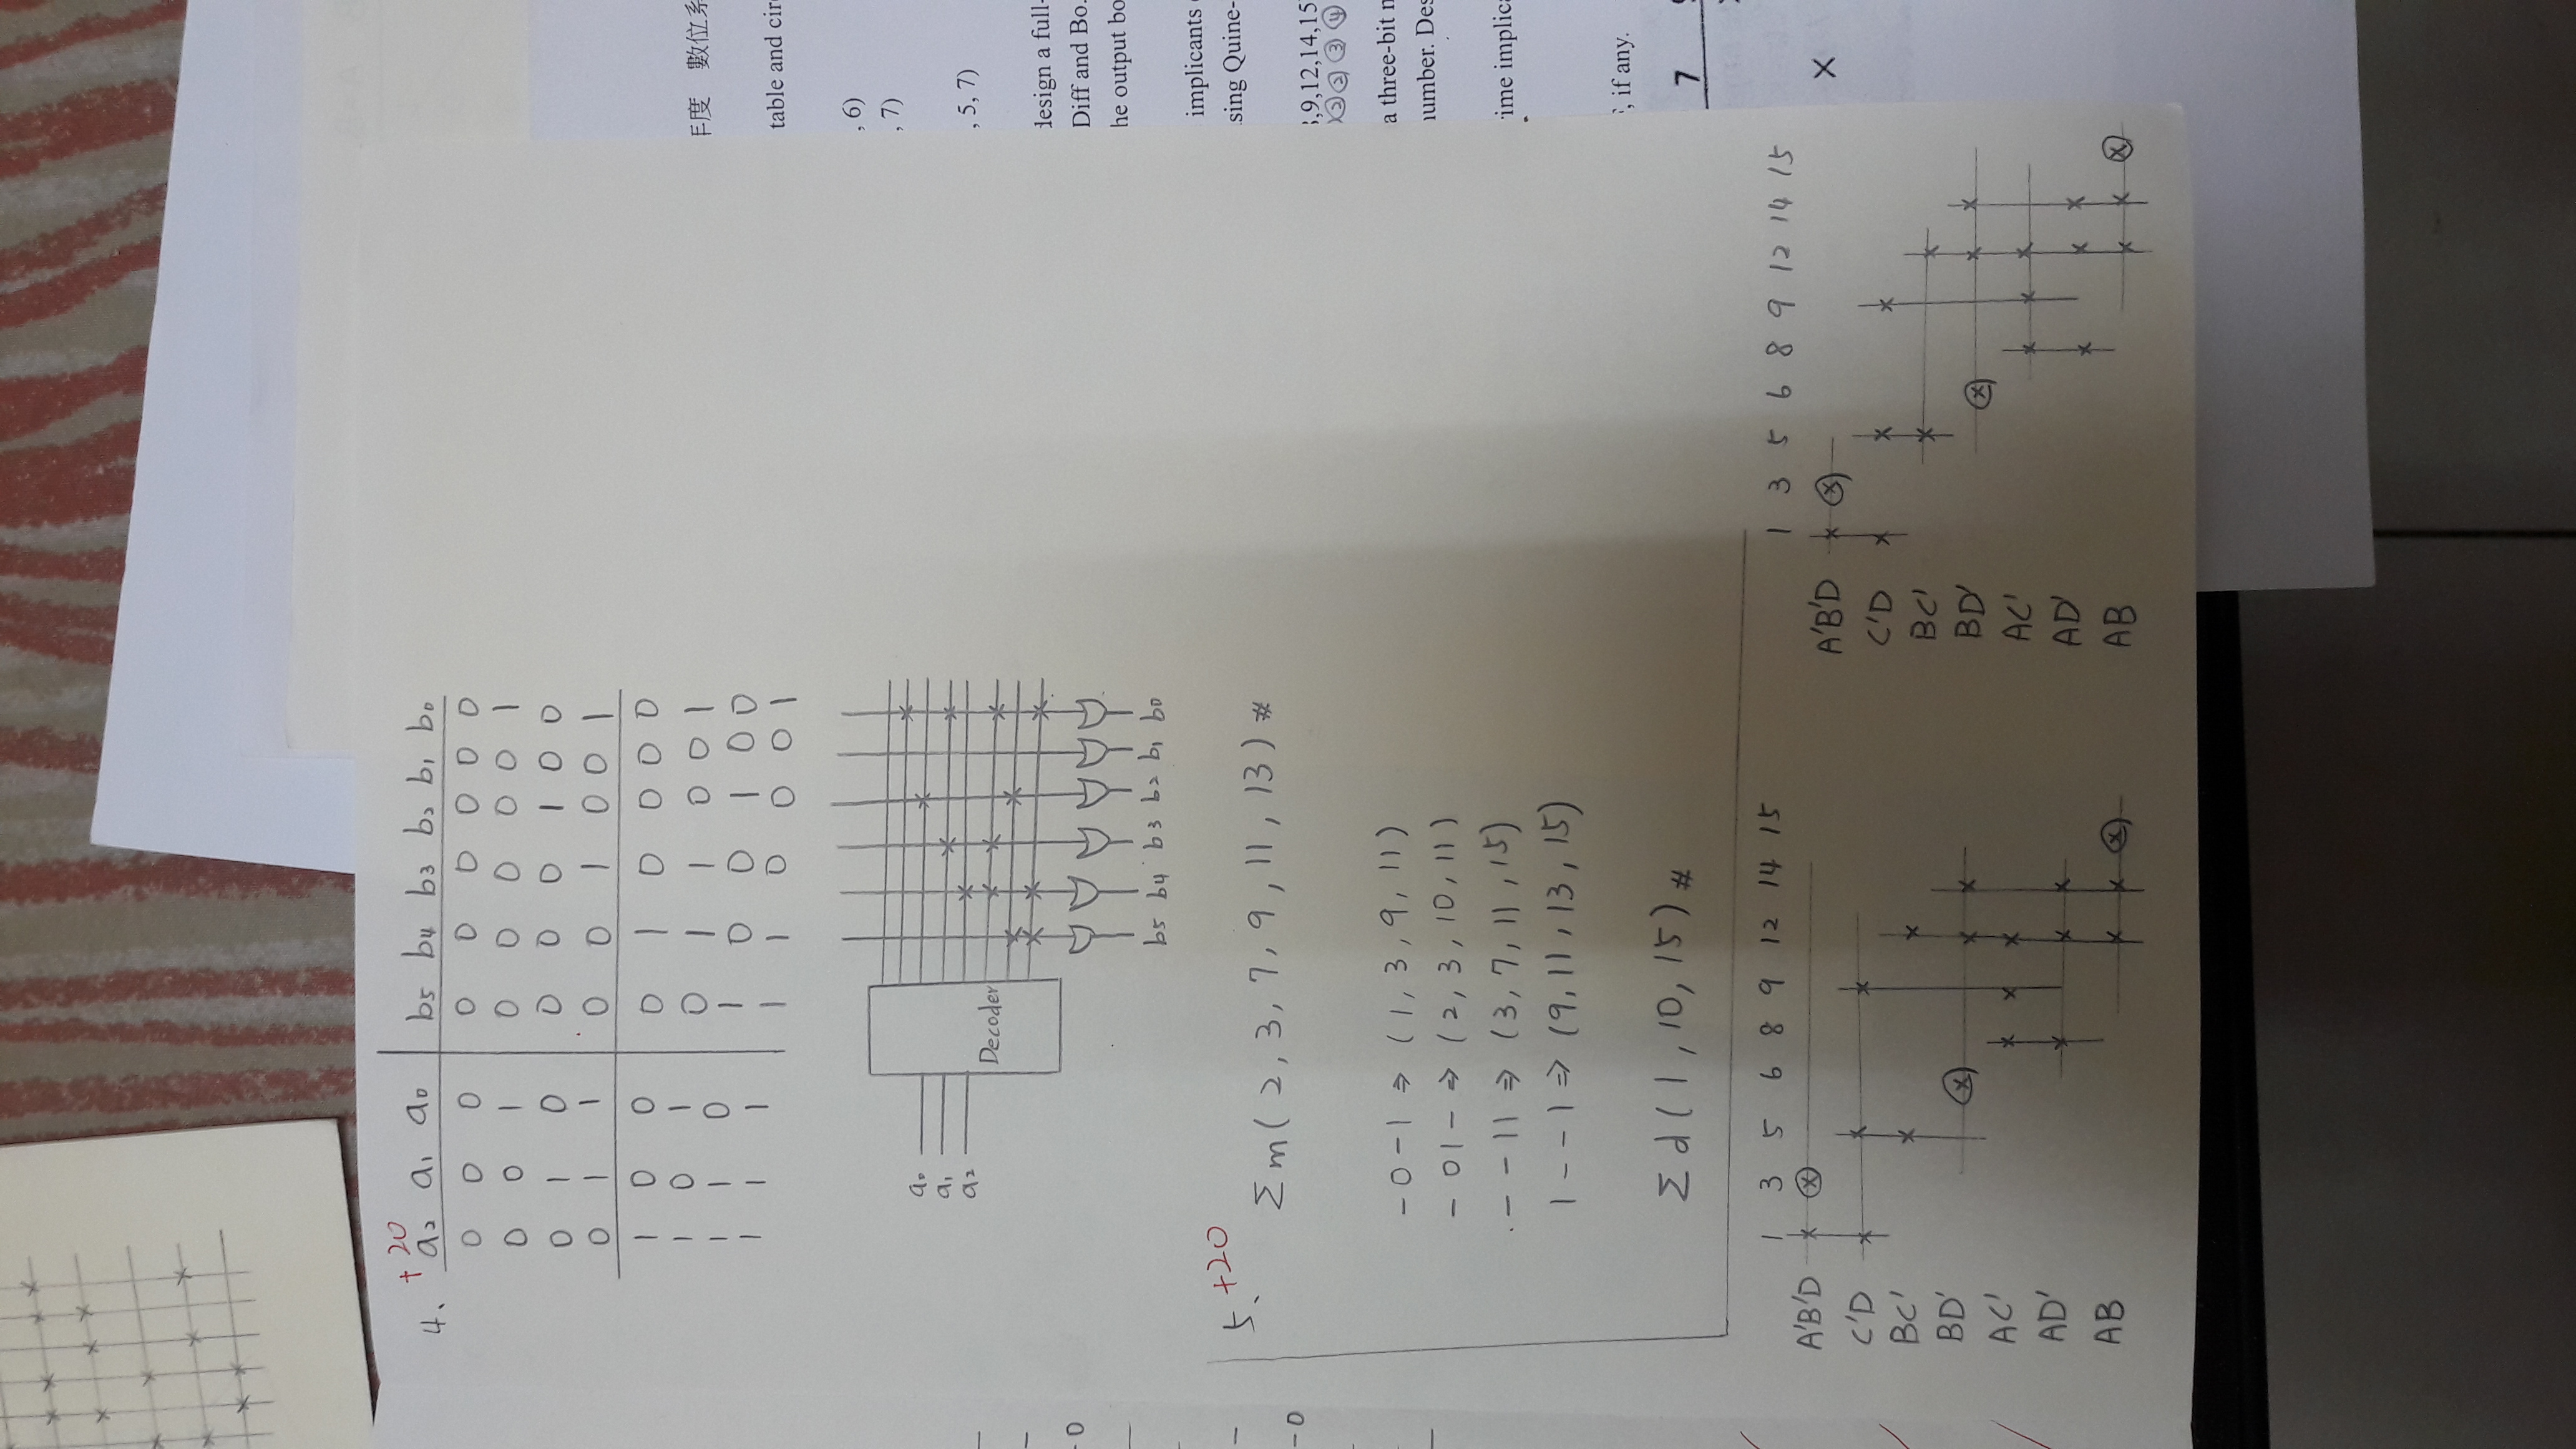 +20
4. a₂ a₁ a₀ b₅ b₄ b₃ b₂ b₁ b₀
0 0 0 0 0 0 0 0 0
0 0 1 0 0 0 0 0 1
0 1 0 0 0 0 1 0 0
0 1 1 0 0 1 0 0 1
1 0 0 0 1 0 0 0 0
1 0 1 0 1 1 0 0 1
1 1 0 1 0 0 1 0 0
1 1 1 1 1 0 0 0 1
a₀
a₁
a₂
Decoder
b₅ b₄ b₃ b₂ b₁ b₀
5. +20
Σm(2, 3, 7, 9, 11, 13) #
-0-1 ⇒ (1, 3, 9, 11)
-01- ⇒ (2, 3, 10, 11)
--11 ⇒ (3, 7, 11, 15)
1--1 ⇒ (9, 11, 13, 15)
Σd(1, 10, 15) #
1 3 5 6 8 9 12 14 15
A'B'D
C'D
BC'
BD'
AC'
AD'
AB
1 3 5 6 8 9 12 14 15
A'B'D
C'D
BC'
BD'
AC'
AD'
AB
-0
-0
年度 數位系
table and cir
, 6)
, 7)
, 5, 7)
design a full-
Diff and Bo.
he output bo
implicants
sing Quine-
,9,12,14,15
② ② ③ ④
a three-bit
number. Des
rime implic
, if any.
7
×